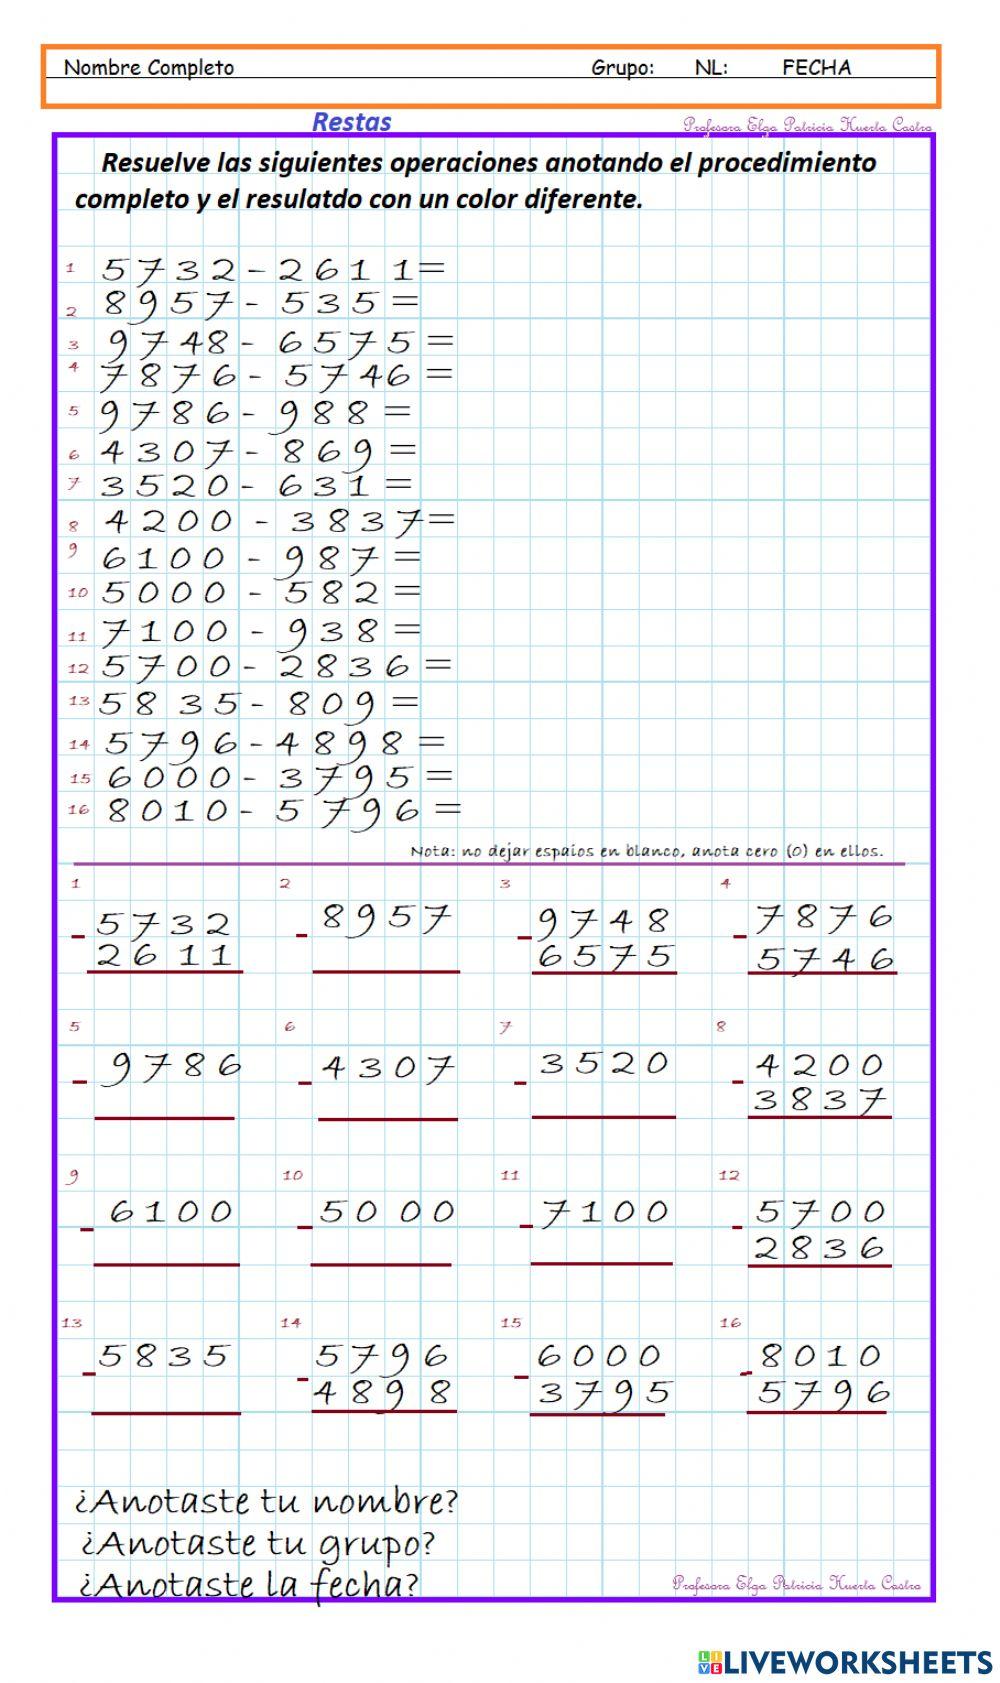 Nombre Completo Grupo: NL: FECHA
Restas Profesora Elga Patricia Huerta Castro
Resuelve las siguientes operaciones anotando el procedimiento
completo y el resulatdo con un color diferente.
1 5732-2611=
2 8957-535=
3 9748-6575=
4 7876-5746=
5 9786-988=
6 4307-869=
7 3520-631=
8 4200-3837=
9 6100-987=
10 5000-582=
11 7100-938=
12 5700-2836=
13 5835-809=
14 5796-4898=
15 6000-3795=
16 8010-5796=
Nota: no dejar espaios en blanco, anota cero (0) en ellos.
1 2 3 4
5732 8957 9748 7876
- 2611 - - 6575 - 5746
5 6 7 8
9786 4307 3520 4200
- - - - 3837
9 10 11 12
6100 5000 7100 5700
- - - - 2836
13 14 15 16
5835 5796 6000 8010
- - 4898 - 3795 - 5796
¿Anotaste tu nombre?
¿Anotaste tu grupo?
¿Anotaste la fecha? Profesora Elga Patricia Huerta Castro
LIVE LIVEWORKSHEETS